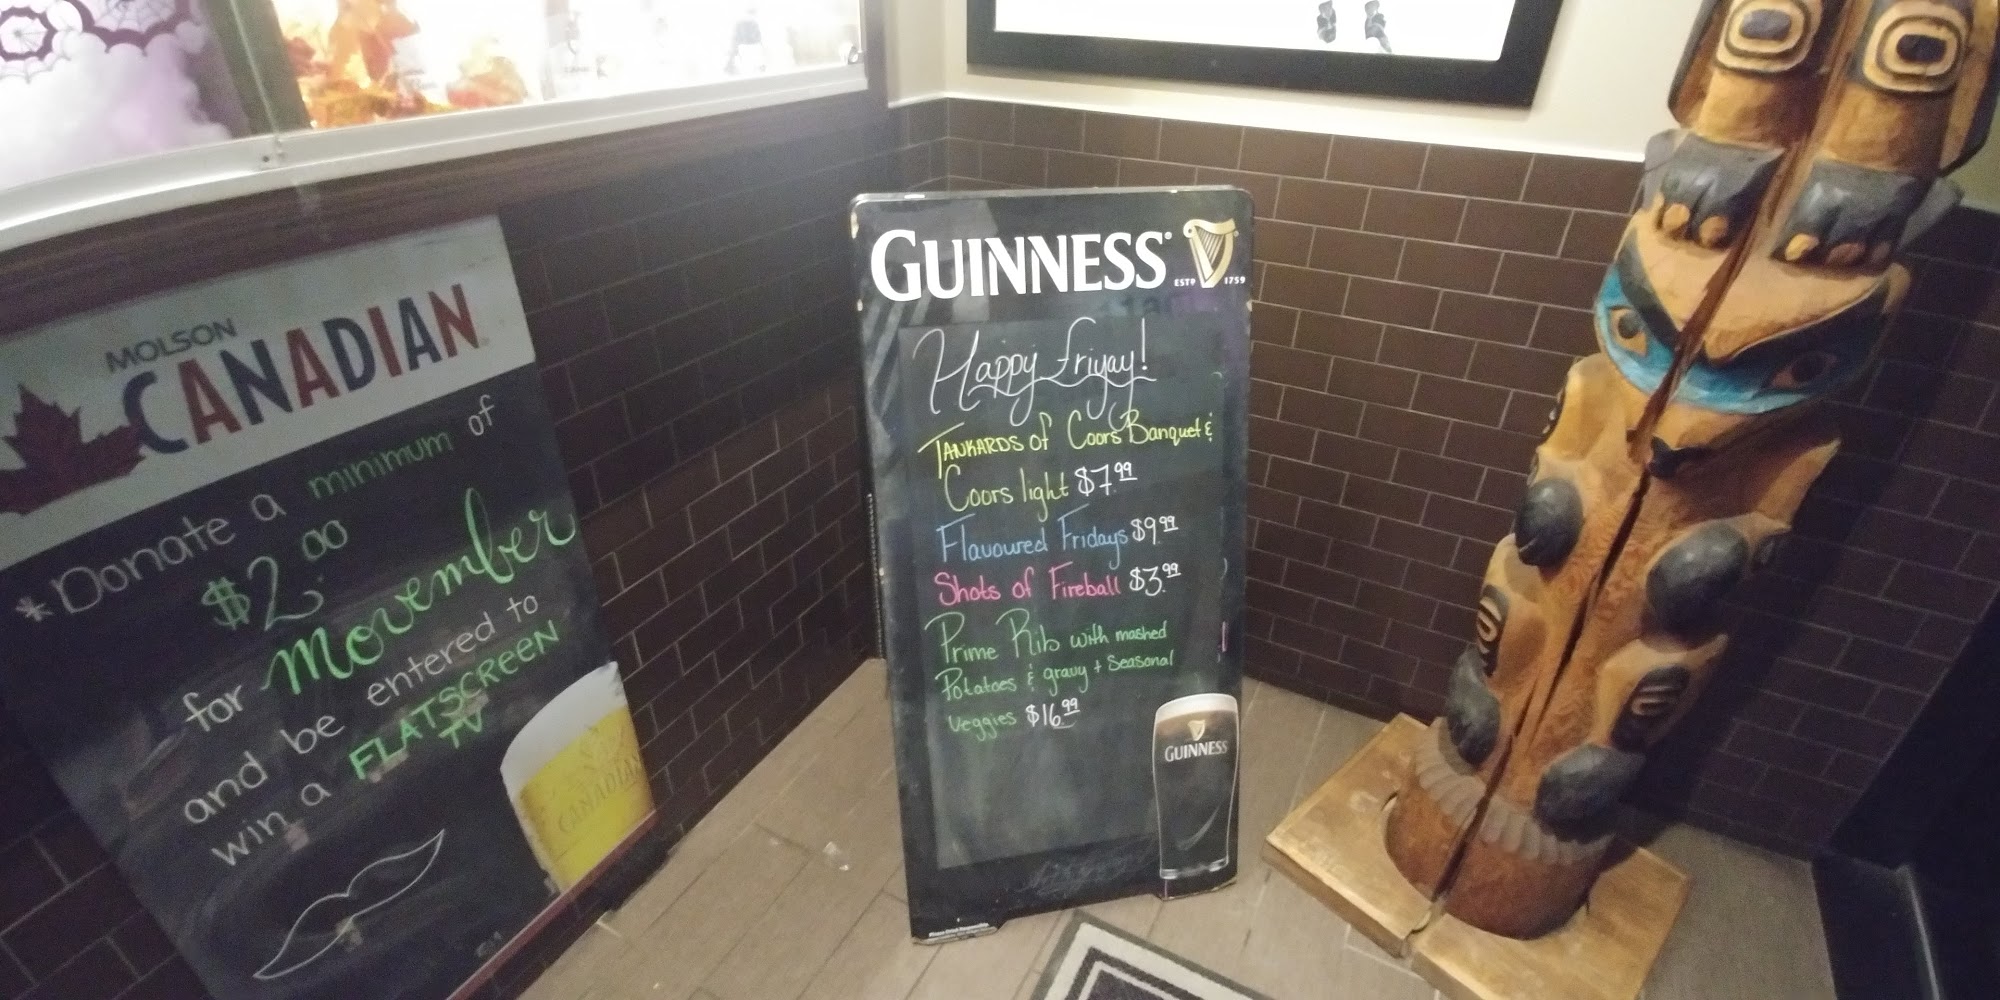 MOLSON
CANADIAN
*Donate a minimum of
$2.00
for Movember
and be entered to
win a FLATSCREEN
TV
CANADIAN
GUINNESS
ESTD 1759
Happy Friyay!
TANKARDS of Coors Banquet &
Coors light $7.99
Flavoured Fridays $9.99
Shots of Fireball $3.99
Prime Rib with mashed
Potatoes & gravy + Seasonal
Veggies $16.99
GUINNESS